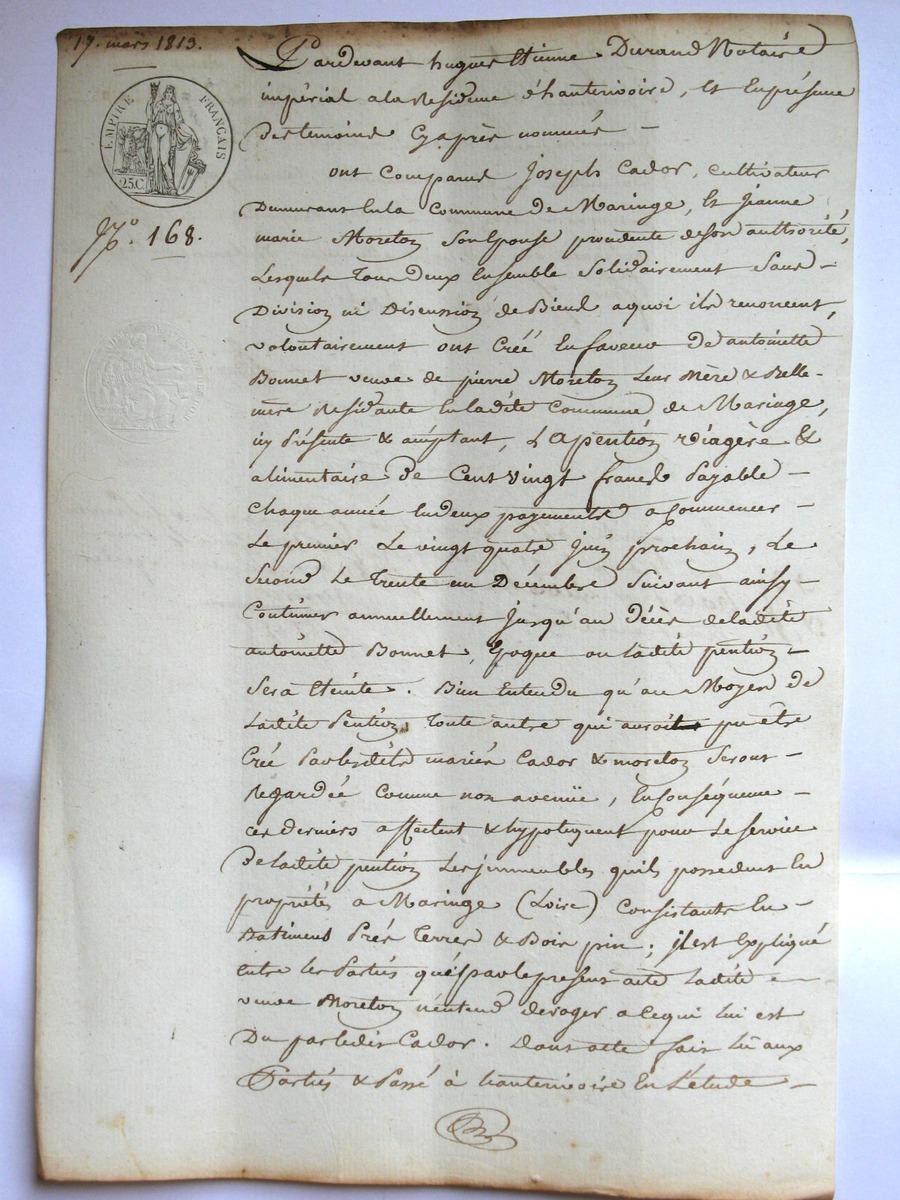 17. mars 1813.
EMPIRE FRANÇAIS
25C.
N.º 168.
Pardevant hugues Etienne Durand Notaire
impérial a la Residence d'hauterivoire, Et En présence
Des temoins Cy après nommés —
ont Comparus Joseph Cador, cultivateur
Demeurant En la Commune de Maringe, Et Jeanne
marie Moreton Son Epouse procedente de son authorité,
Lesquels Tous deux Ensemble Solidairement Sans —
Division ni Discussion de Biens a quoi ils renoncent,
volontairement ont Créé En faveur De antoinette
Bonnet veuve de pierre Moreton Leur Mère & Belle-
mère Residante En ladite Commune de Maringe,
icy Présente & acceptant, La pention viagère &
alimentaire De Cent vingt francs Payable —
Chaque année En deux payements a Commencer —
Le premier Le vingt quatre Juin prochain, Le
Second Le Trente un Décembre Suivant ainsy —
Continuer annuellement Jusqu'au Décès de ladite
antoinette Bonnet, Epoque ou ladite pention —
Sera Eteinte. Bien Entendu qu'au Moyen de
Ladite Pention, Toute autre qui auroit pu être
Créé Par lesdits mariés Cador & moreton Seront —
Regardée Comme non avenüe, En Conséquence —
ces derniers affectent & hypotequent pour Le service
De ladite pention Les jmmeubles quils possedent En
propriétés a Maringe (Loire) Consistants En —
Batiments Prés Terres & Bois pin; jl est Expliqué
Entre les Parties que par le present acte Ladite —
veuve Moreton n'entend déroger a ce qui lui est
Du par ledit Cador. Dont acte fait Lu aux
Parties & Passé à hauterivoire En L'étude —